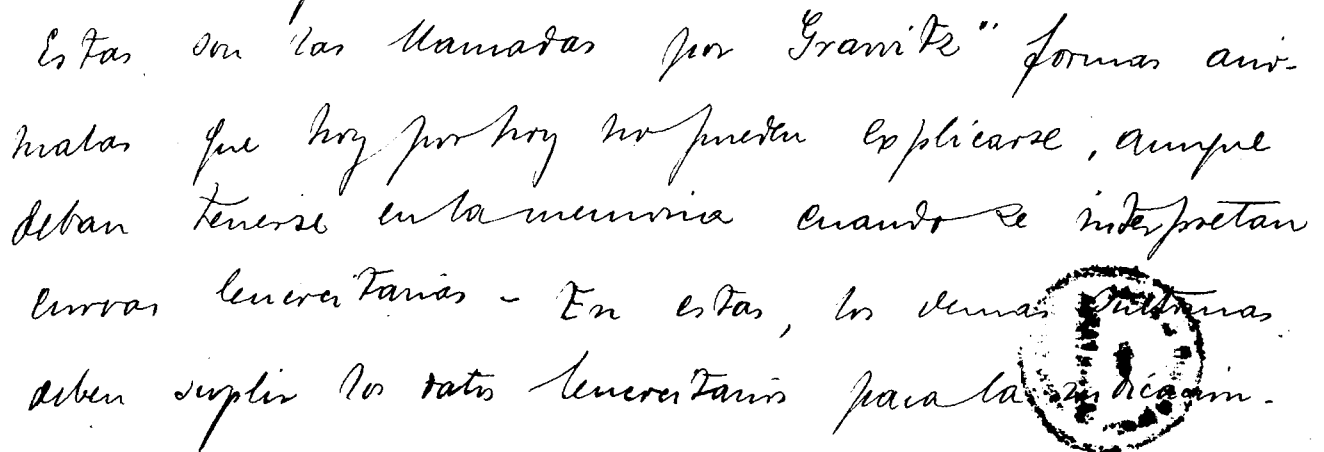 Estas son las llamadas por Grawitz" formas anó-
malas que hoy por hoy no pueden explicarse, aunque
deban tenerse en la memoria cuando se interpretan
curvas leucocitarias - En estas, los demas síntomas
deben suplir los datos leucocitarios para la indicación.